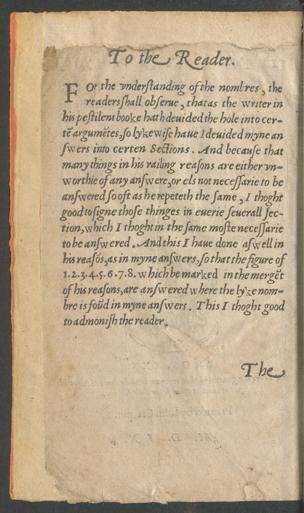 To the Reader.
FOr the vnderstanding of the nombres, the
readers shall obserue, that as the writer in
his pestilent booke hath deuided the hole into cer-
tē argumētes, so lykewise haue I deuided myne an
swers into certen Sections. And because that
many things in his railing reasons are either vn-
worthie of any answere, or els not necessarie to be
answered so oft as he repeteth the same, I thoght
good to signe those thinges in euerie seuerall sec-
tion, which I thoght in the same moste necessarie
to be answered. And this I haue done aswell in
his reasōs, as in myne answers, so that the figure of
1.2.3.4.5.6.7.8. which be marked in the mergēt
of his reasons, are answered where the lyke nom-
bre is foūd in myne answers. This I thoght good
to admonish the reader.
The